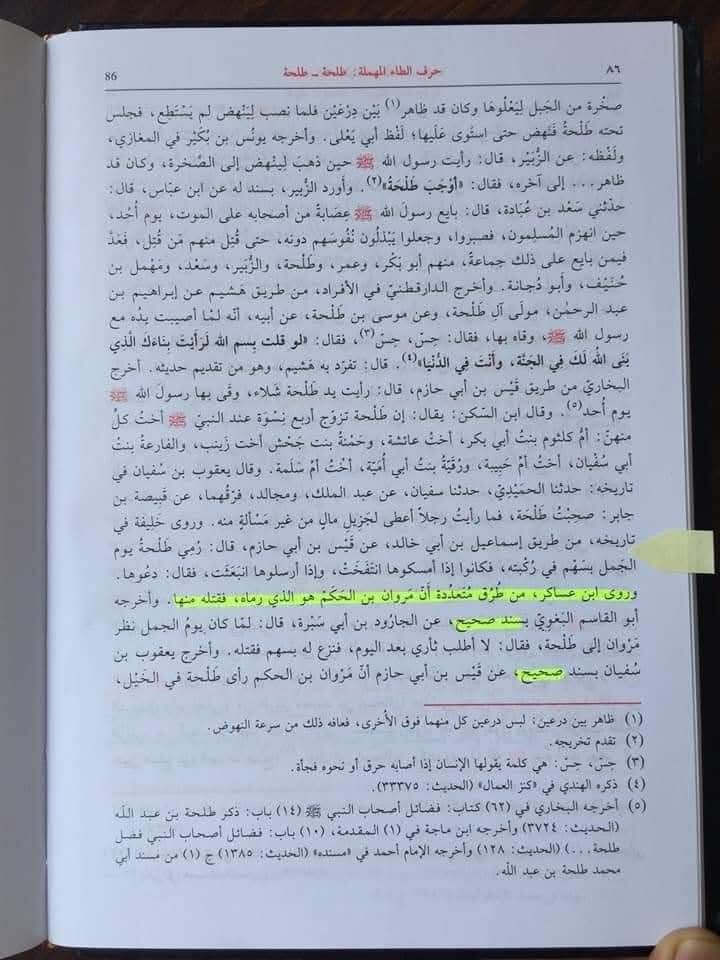 ٨٦ حرف الطاء المهملة: طلحة ـ طلحة 86
صخْرة من الجَبل لِيَعْلُوهَا وكان قد ظاهر(١) بَيْن دِرْعَيْن فلما نصب لِيَنْهض لم يَسْتَطِع، فجلس
تحته طَلْحةُ فَنَهض حتى اسْتَوى عَلَيها؛ لَفْظ أبي يَعْلى. وأخرجه يونس بن بُكَيْر في المغازي،
ولَفْظه: عن الزُّبَيْر، قال: رأيت رسول الله ﷺ حين ذهبَ لِينْهض إلى الصَّخرة، وكان قد
ظاهر... إلى آخره، فقال: «أوْجَبَ طَلْحَةُ»(٢). وأورد الزُّبير، بسند له عن ابن عبّاس، قال:
حدّثني سَعْد بن عُبَادة، قال: بايع رسولَ الله ﷺ عِصَابةٌ من أصحابه على الموت، يوم أُحُد،
حين انهزم المُسلِمون، فصبروا، وجعلوا يَبْذلُون نُفُوسَهم دونه، حتى قُتِل منهم مَن قُتِل، فَعَدَّ
فيمن بايع على ذلك جماعةً، منهم أبو بَكْر، وعمر، وطَلْحة، والزُّبَيْر، وسَعْد، وسَهْل بن
حُنَيْف، وأبو دُجانة. وأخرج الدارقطنيّ في الأفراد، من طريق هَشيم عن إبراهيم بن
عبد الرحمٰن، مولى آلِ طَلْحة، وعن موسى بن طَلْحة، عن أبيه، أنّه لمّا أصيبت يدُه مع
رسول الله ﷺ، وقاه بها، فقال: حِسّ، حِسّ(٣)، فقال: «لو قلت بِسم الله لَرَأيْتَ بِنَاءَكَ الَّذِي
بَنَى اللهُ لَكَ في الجَنَّةِ، وأَنْتَ في الدُّنْيا»(٤). قال: تفرّد به هَشيم، وهو من قديم حديثه. أخرج
البخاريّ من طريق قَيْس بن أبي حازم، قال: رأيت يد طَلْحة شَلاء، وقَى بها رسولَ الله ﷺ
يوم أُحد(٥). وقال ابن السّكن: يقال: إن طَلْحة تزوّج أربع نِسْوَة عند النبيّ ﷺ أختُ كلّ
منهنّ: أمّ كلثوم بنتُ أبي بكر، أختُ عائشة، وحَمْنةُ بنت جَحْش أخت زَينب، والفارعةُ بنتُ
أبي سُفْيان، أختُ أمّ حَبيبة، ورُقَيَّةُ بنتُ أبي أُمَيّة، أخْتُ أمّ سَلَمة. وقال يعقوب بن سُفيان في
تاريخه: حدّثنا الحمَيْديّ، حدّثنا سفيان، عن عبد الملك، ومجالد، فرّقهُما، عن قَبيصة بن
جابر: صحِبْتُ طَلْحَة، فما رأيْتُ رجلاً أعطى لجَزِيلِ مالٍ من غير مَسألةٍ منه. وروى خَليفة في
تاريخه، من طريق إسماعيل بن أبي خالد، عن قَيْس بن أبي حازم، قال: رُمِي طَلْحةُ يوم
الجَمل بسَهْم في رُكْبته، فكانوا إذا أمسكوها انتَفَخَتْ، وإذا أرسلوها انبَعَثَت، فقال: دعُوها.
وروى ابن عساكر، من طُرُق مُتعدِّدة أنّ مَروان بن الحَكَمْ هو الذي رماه، فقتله منها. وأخرجه
أبو القاسم البَغويّ بسند صحيح، عن الجارود بن أبي سَبْرة، قال: لمّا كان يومُ الجمل نظر
مَرْوان إلى طَلْحة، فقال: لا أطلب ثأري بعد اليوم، فنزع له بسهم فقتله. وأخرج يعقوب بن
سُفيان بسند صحيح، عن قَيْس بن أبي حازم أنّ مَرْوان بن الحكم رأى طَلْحة في الخَيْل،
(١) ظاهر بين درعين: لبس درعين كل منهما فوق الأخرى، فعافه ذلك من سرعة النهوض.
(٢) تقدم تخريجه.
(٣) حِسّ، حِسّ: هي كلمة يقولها الإنسان إذا أصابه حرق أو نحوه فجأة.
(٤) ذكره الهندي في «كنز العمال» (الحديث: ٣٣٣٧٥).
(٥) أخرجه البخاري في (٦٢) كتاب: فضائل أصحاب النبي ﷺ (١٤) باب: ذكر طلحة بن عبد الله
(الحديث: ٣٧٢٤) وأخرجه ابن ماجة في (١) المقدمة، (١٠) باب: فضائل أصحاب النبي فضل
طلحة...) (الحديث: ١٢٨) وأخرجه الإمام أحمد في «مسنده» (الحديث: ١٣٨٥) ج (١) من مسند أبي
محمد طلحة بن عبد الله.